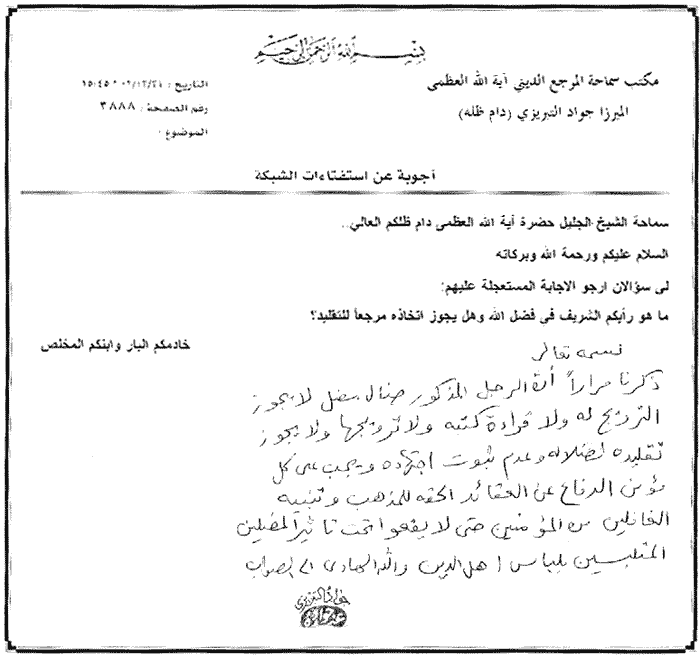 بسم الله الرحمن الرحيم
مكتب سماحة المرجع الديني آية الله العظمى
الميرزا جواد التبريزي (دام ظله)
التاريخ :
رقم الصفحة : ٣٨٨٨
الموضوع :
أجوبة عن استفتاءات الشبكة
سماحة الشيخ الجليل حضرة آية الله العظمى دام ظلكم العالي..
السلام عليكم ورحمة الله وبركاته
لى سؤالان ارجو الاجابة المستعجلة عليهم:
ما هو رأيكم الشريف فى فضل الله وهل يجوز اتخاذه مرجعاً للتقليد؟
خادمكم البار وابنكم المخلص
بسمه تعالى
ذكرنا مراراً أن الرجل المذكور ضال مضل لا يجوز
الترويج له ولا قراءة كتبه ولا ترويجها ولا يجوز
تقليده لضلاله وعدم ثبوت اجتهاده ويجب على كل
مؤمن الدفاع عن العقائد الحقه للمذهب وتنبيه
الغافلين من المؤمنين حتى لا يقعوا تحت تأثير المضلين
المتلبسين بلباس اهل الدين والله الهادي الى الصواب
جواد التبريزي